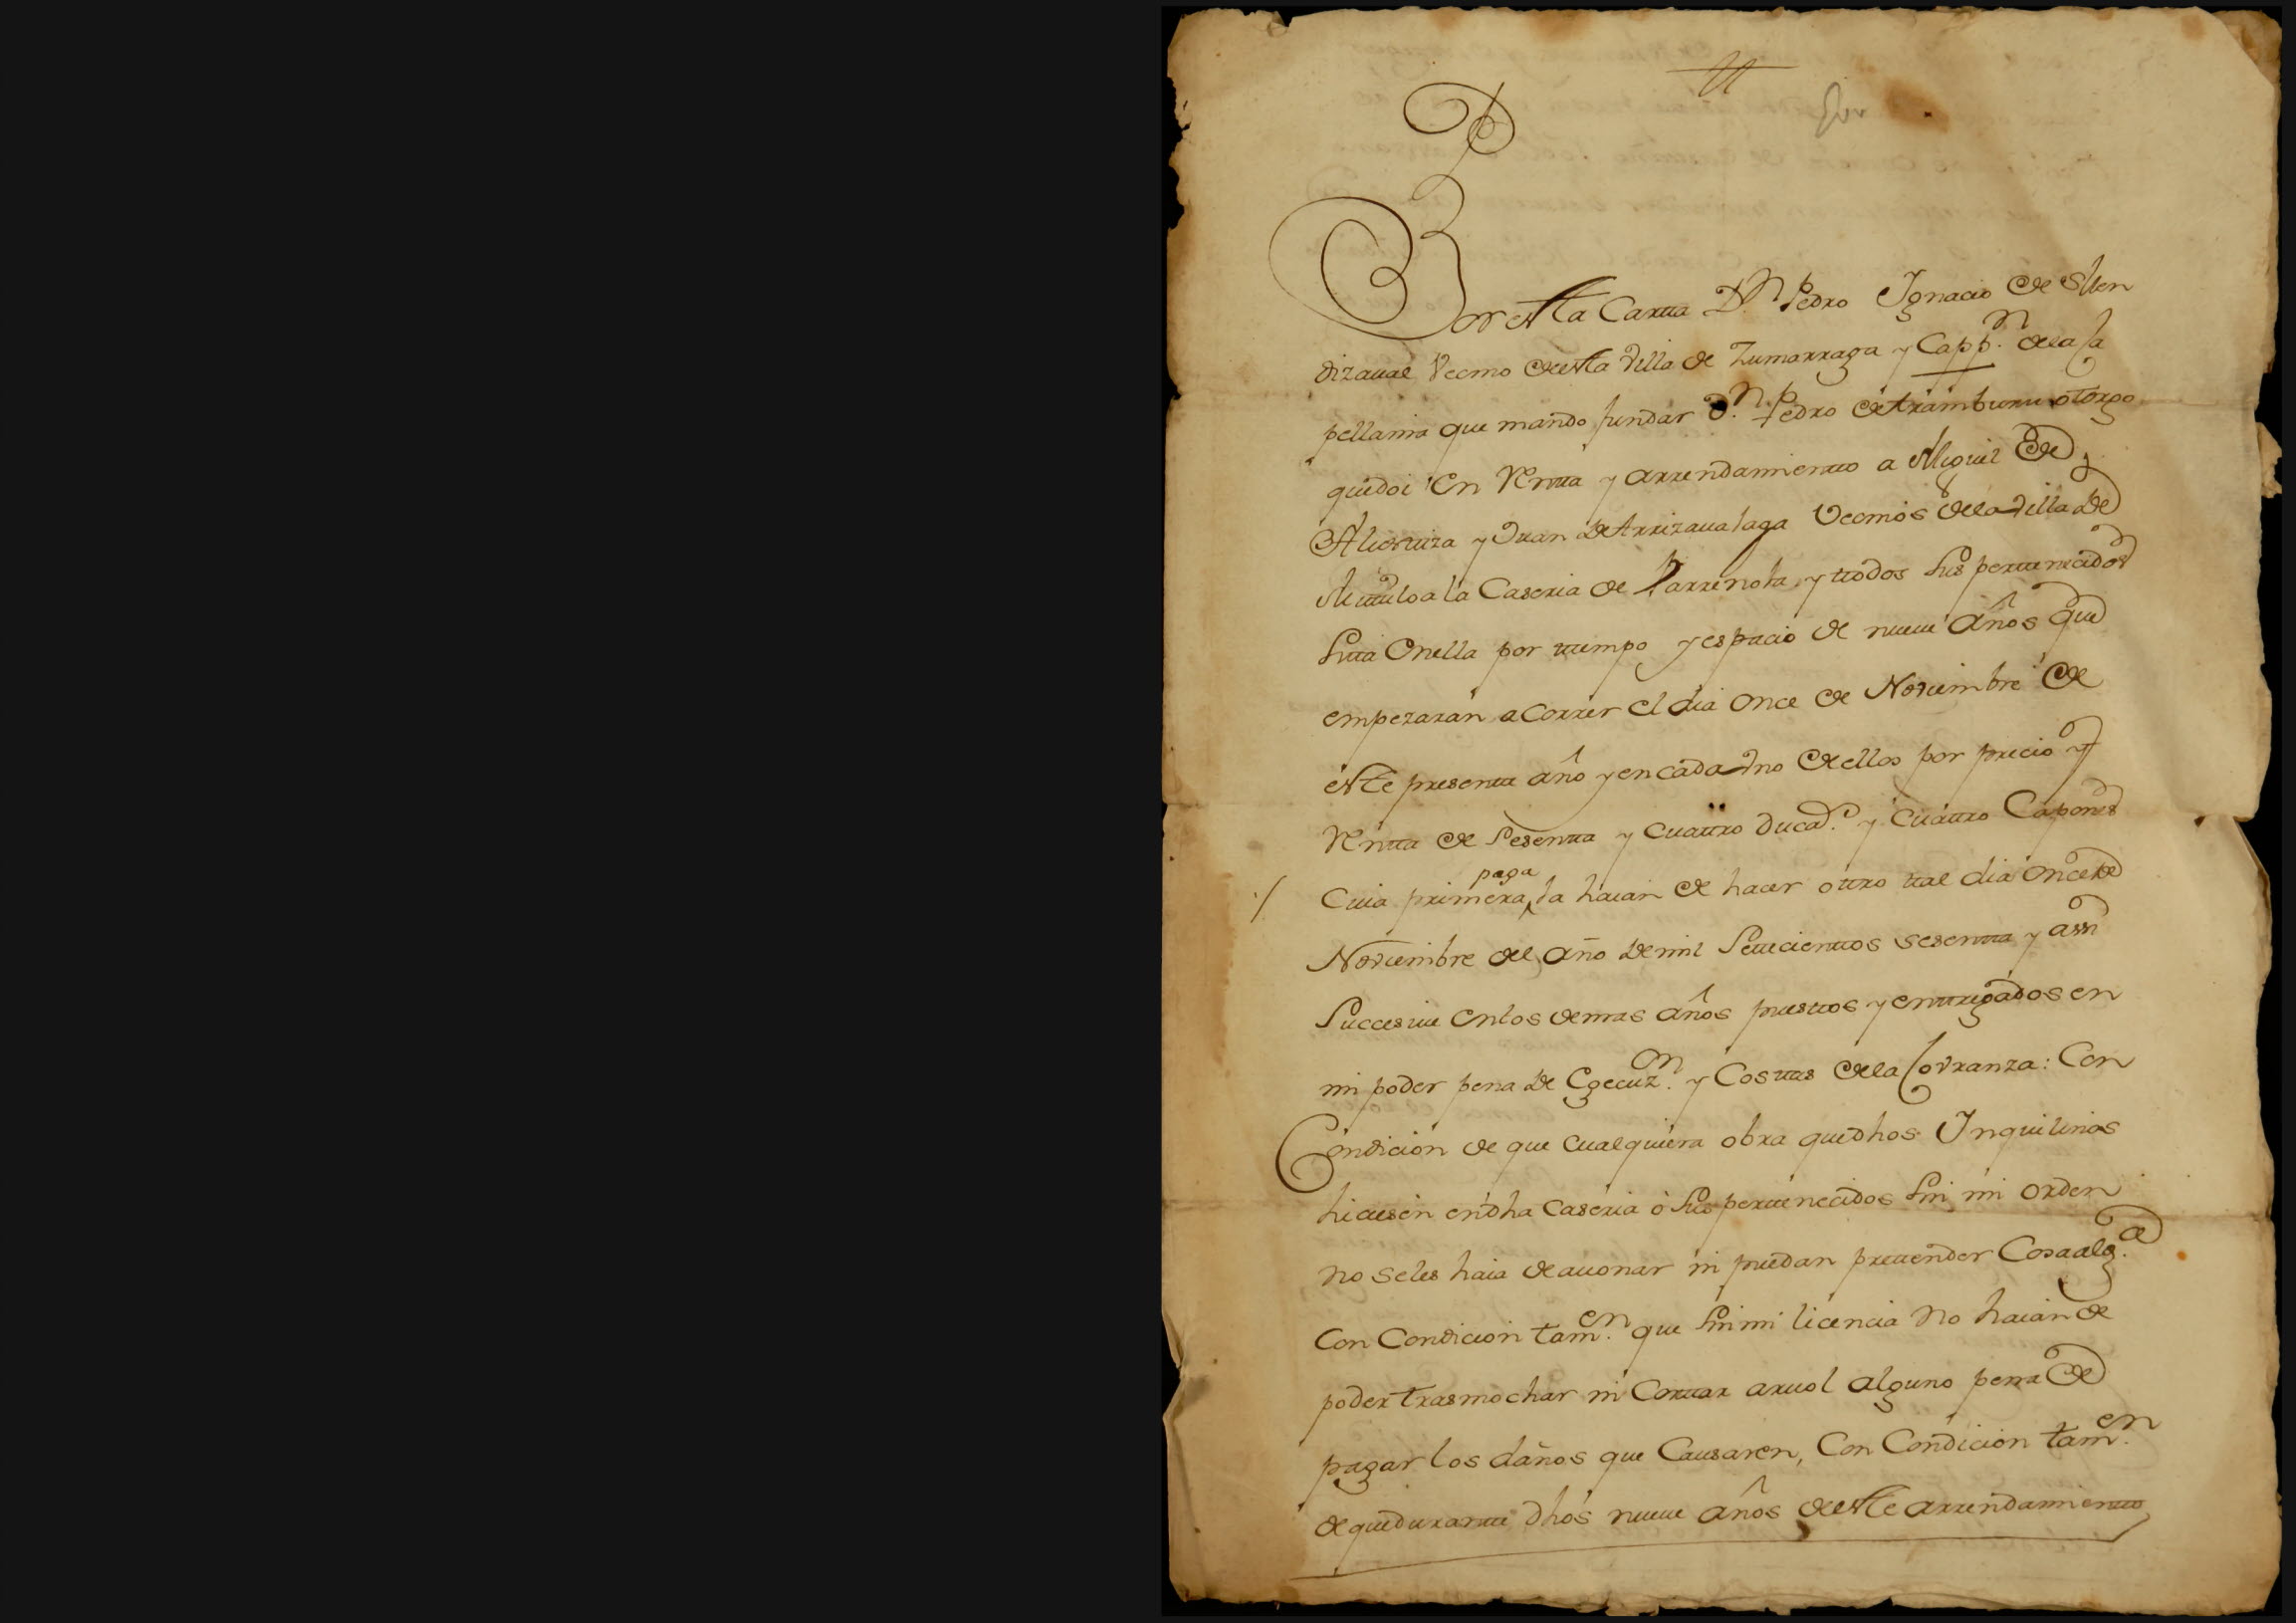 Por esta Carta D.n Pedro Ignacio de Men
dizaual Vecino de esta Villa de Zumarraga y Capp.n de la Ca
pellania que mando fundar D.n Pedro de Aramburu otorgo
que doi en Renta y arrendamiento a Miguel de
Alcorta y Juan de Arrizaualaga Vecinos de la Villa de
la Caseria de y todos sus pertenecidos
sita en ella por tiempo y espacio de nueue años que
empezaran a correr el dia once de Noviembre de
este presente año y en cada vno de ellos por precio y
Renta de sesenta y cuatro ducad.s y cuatro Capones
Cuia primera paga la haian de hacer otro tal dia once de
Noviembre del año de mil setecientos sesenta y assi
succesiue en los demas años puestos y entregados en
mi poder pena de Egecuz.on y Costas de la Covranza: Con
Condicion de que cualquiera obra que dhos Inquilinos
hiciesen en dha caseria ò sus pertenecidos sin mi orden
no se les haia de auonar ni puedan pretender Cosa alg.a
Con Condicion tam.en que sin mi licencia no haian de
poder trasmochar ni Cortar aruol alguno pena de
pagar los daños que Causaren, Con Condicion tam.en
de que durante dhos nueue años de este arrendamiento